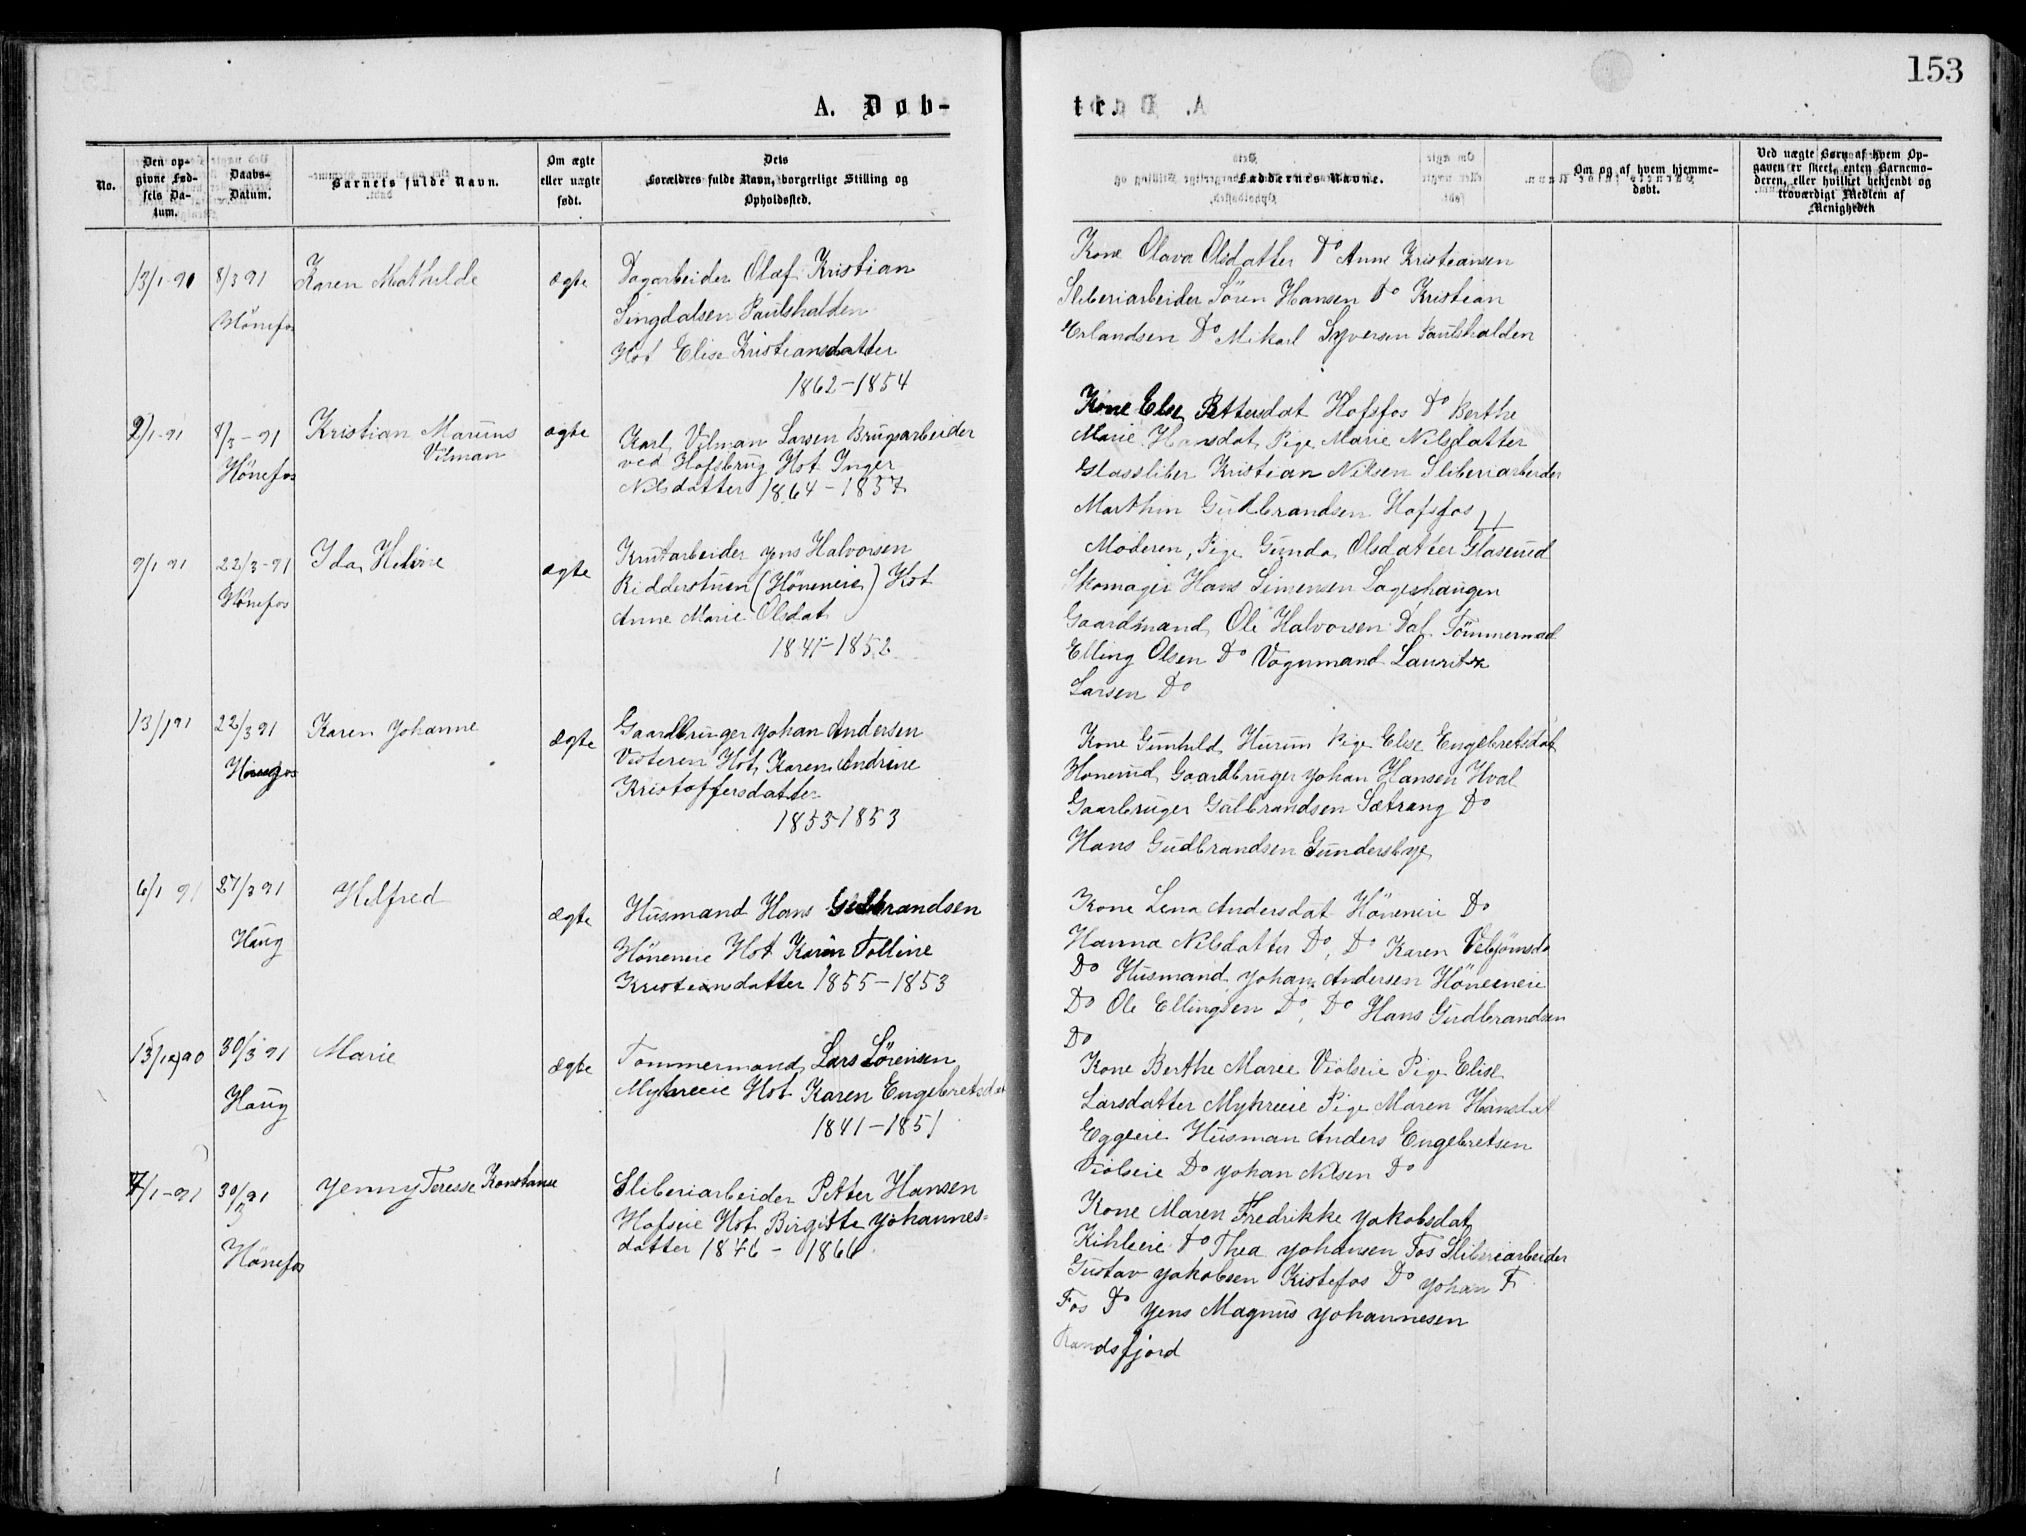 153
A. Døb-
te.
No.
Den op-
givne Fød-
sels Da-
tum.
Daabs-
Datum.
Barnets fulde Navn.
Om ægte
eller uægte
født.
Dets
Forældres fulde Navn, borgerlige Stilling og
Opholdssted.
Faddernes Navne.
Om og af hvem hjemme-
døbt.
Ved uægte Børn af hvem Op-
gaven er skeet, enten Barnemo-
deren, eller hvilket bekjendt og
troværdigt Medlem af
Menigheden
13/1-90
8/3 91
Hönefos
Karen Mathilde
ægte
Dagarbeider Olaf Kristian
Singdalsen Paulshalden
Hot Elise Kristiansdatter
1862-1854
Kone Olava Olsdatter Do Anne Kristiansen
Sliberiarbeider Sören Hansen Do Kristian
Erlandsen Do Mikael Syversen Paulshalden
2/1-91
8/3-91
Hönefos
Kristian Marius
Vilman
ægte
Karl Vilman Larsen Brugsarbeider
ved Hofsbrug Hot Inger
Nilsdatter 1864-1837
Kone Else Pettersdat Hofsfos Do Berthe
Marie Hansdat Pige Marie Nilsdatter
Glassliber Kristian Nilsen Sliberiarbeider
Marthin Gudbrandsen Hofsfos
9/1 91
22/3-91
Hönefos
Ida Heline
ægte
Krutarbeider Jens Halvorsen
Ridderstuen (Höneneie) Hot
Anne Marie Olsdat
1841-1852
Moderen, Pige Gunda Olsdatter Glaserud
Skomager Hans Simensen Lageshaugen
Gaardmand Ole Halvorsen Dal Tömmermad
Elling Olsen Do Vognmand Lauritz
Larsen Do
13/1 91
22/3 91
Karen Johanne
ægte
Gaardbruger Johan Andersen
Vesteren Hot Karen Andrine
Kristoffersdatter
1853-1853
Kone Gunhild Hurum Pige Elise Engebretsdat
Honerud Gaardbruger Johan Hansen Hval
Gaarbruger Gulbrandsen Sætrang Do
Hans Gudbrandsen Gundersbye
6/1 91
27/3 91
Haug
Hilfred
ægte
Husmand Hans Gulbrandsen
Höneneie Hot Karin Tolline
Kristiansdatter 1855-1853
Kone Lena Andersdat Höneneie Do
Hanna Nilsdatter Do, Do Karen Vebjörnsda
Do Husmand Johan Andersen Höneneie
Do Ole Ellingsen Do, Do Hans Gudbrandsen
Do
13/12 90
30/3 91
Haug
Marie
ægte
Tommermand Lars Sörensen
Myhreeie Hot Karen Engebretsdat
1841-1851
Kone Berthe Marie Violseie Pige Elise
Larsdatter Myhreeie Pige Maren Hansdat
Eggeeie Husman Anders Engebretsen
Violseie Do Johan Nilsen Do
7/1-91
30/3 91
Hönefos
Jenny Teresse Konstanse
Sliberiarbeider Petter Hansen
Hofseie Hot Birgitte Johannes-
datter 1846 - 1866
Kone Maren Fredrikke Jakobsdat
Kihleeie Do Thea Johansen Fos Sliberiarbeider
Gustav Jakobsen Kistefos Do Johan F
Fos Do Jens Magnus Johannesen
Randsfjord